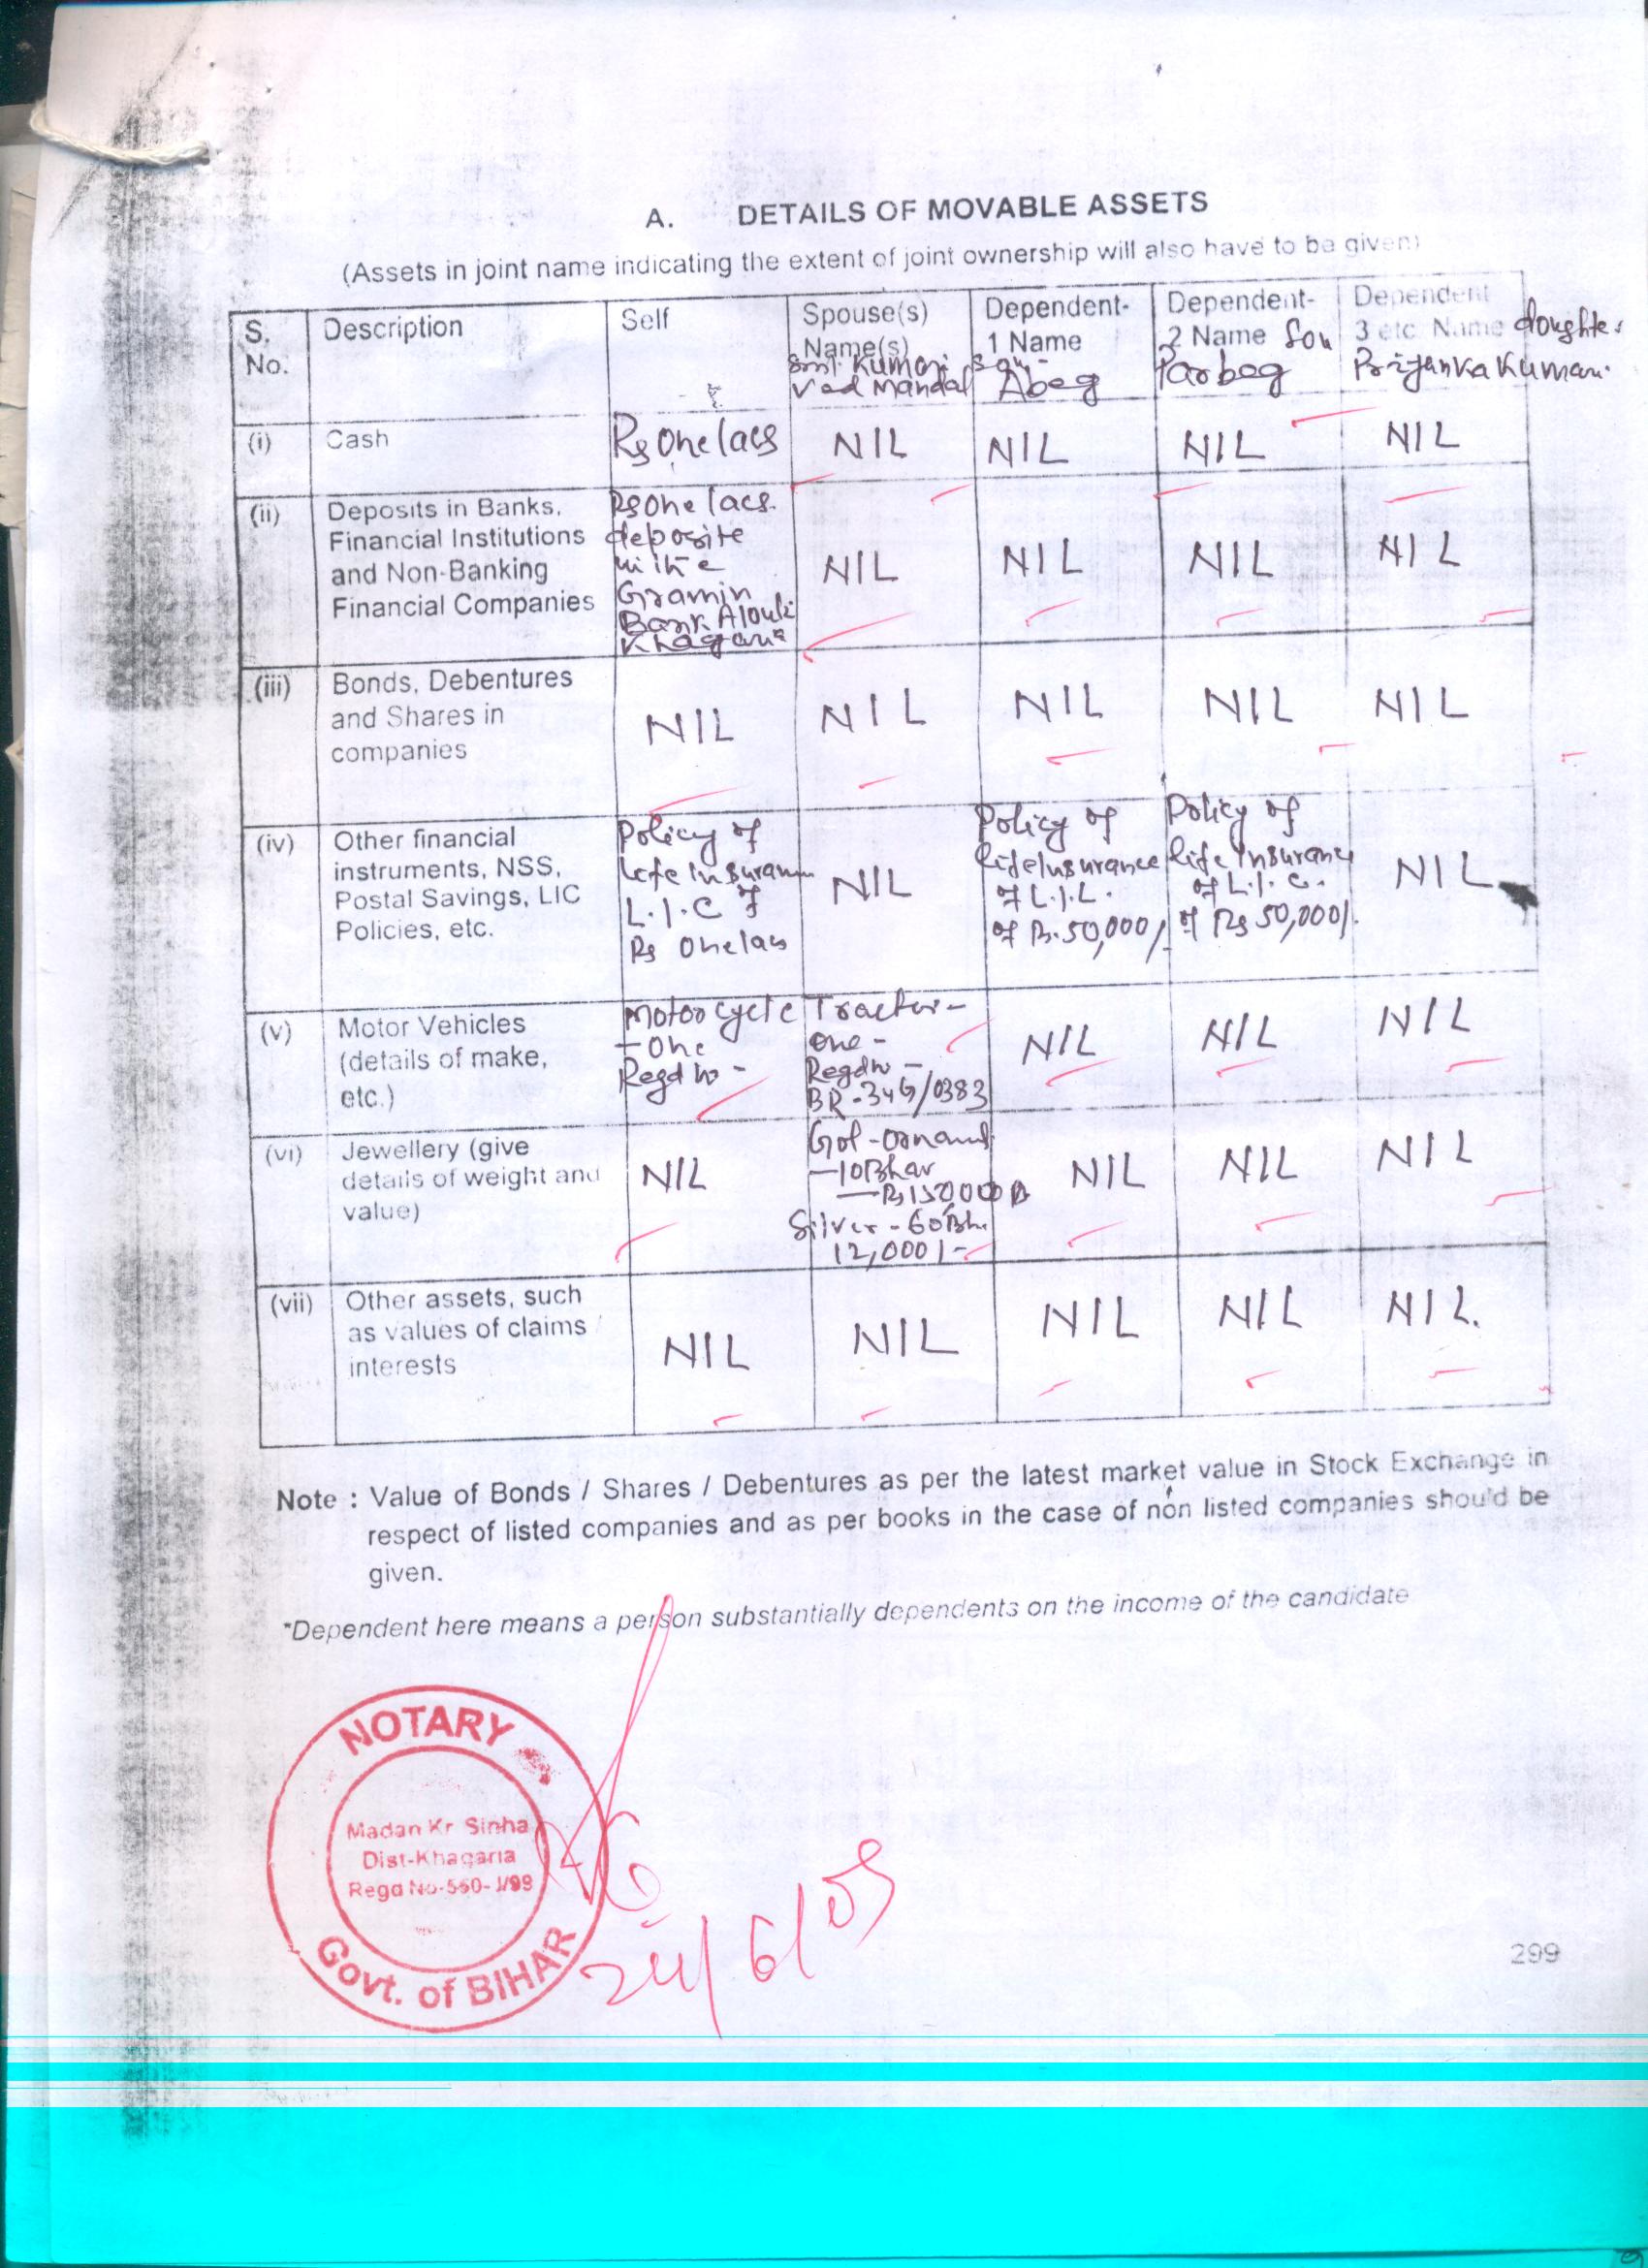 A. DETAILS OF MOVABLE ASSETS
(Assets in joint name indicating the extent of joint ownership will also have to be given)
S. No. Description Self Spouse(s) Name(s) Smt. Kumari Ved Mandal Dependent-1 Name Son - Abeg Dependent-2 Name Son Parbeg Dependent 3 etc. Name doughter Priyanka Kumari.
(i) Cash Rs One lacs NIL NIL NIL NIL
(ii) Deposits in Banks, Financial Institutions and Non-Banking Financial Companies Rs One lacs. deposite in the Gramin Bank Alouli Khagaria NIL NIL NIL NIL
(iii) Bonds, Debentures and Shares in companies NIL NIL NIL NIL NIL
(iv) Other financial instruments, NSS, Postal Savings, LIC Policies, etc. Policy of Life Insuran of L.I.C of Rs One lacs NIL Policy of life Insurance of L.I.C. of Rs. 50,000/- Policy of life Insurance of L.I.C. of Rs 50,000/. NIL
(v) Motor Vehicles (details of make, etc.) Motorcycle - One Regd No - Tractor - One - Regd No - BR-34G/0383 NIL NIL NIL
(vi) Jewellery (give details of weight and value) NIL - 10 Bhar - Rs 150,000 Silver - 60 Bh. 12,000/- NIL NIL NIL
(vii) Other assets, such as values of claims / interests NIL NIL NIL NIL NIL.
Note : Value of Bonds / Shares / Debentures as per the latest market value in Stock Exchange in
respect of listed companies and as per books in the case of non listed companies should be
given.
*Dependent here means a person substantially dependents on the income of the candidate
NOTARY
Madan Kr Sinha
Dist-Khagaria
Regd No-560-J/99
Govt. of BIHAR
24/6/09
299